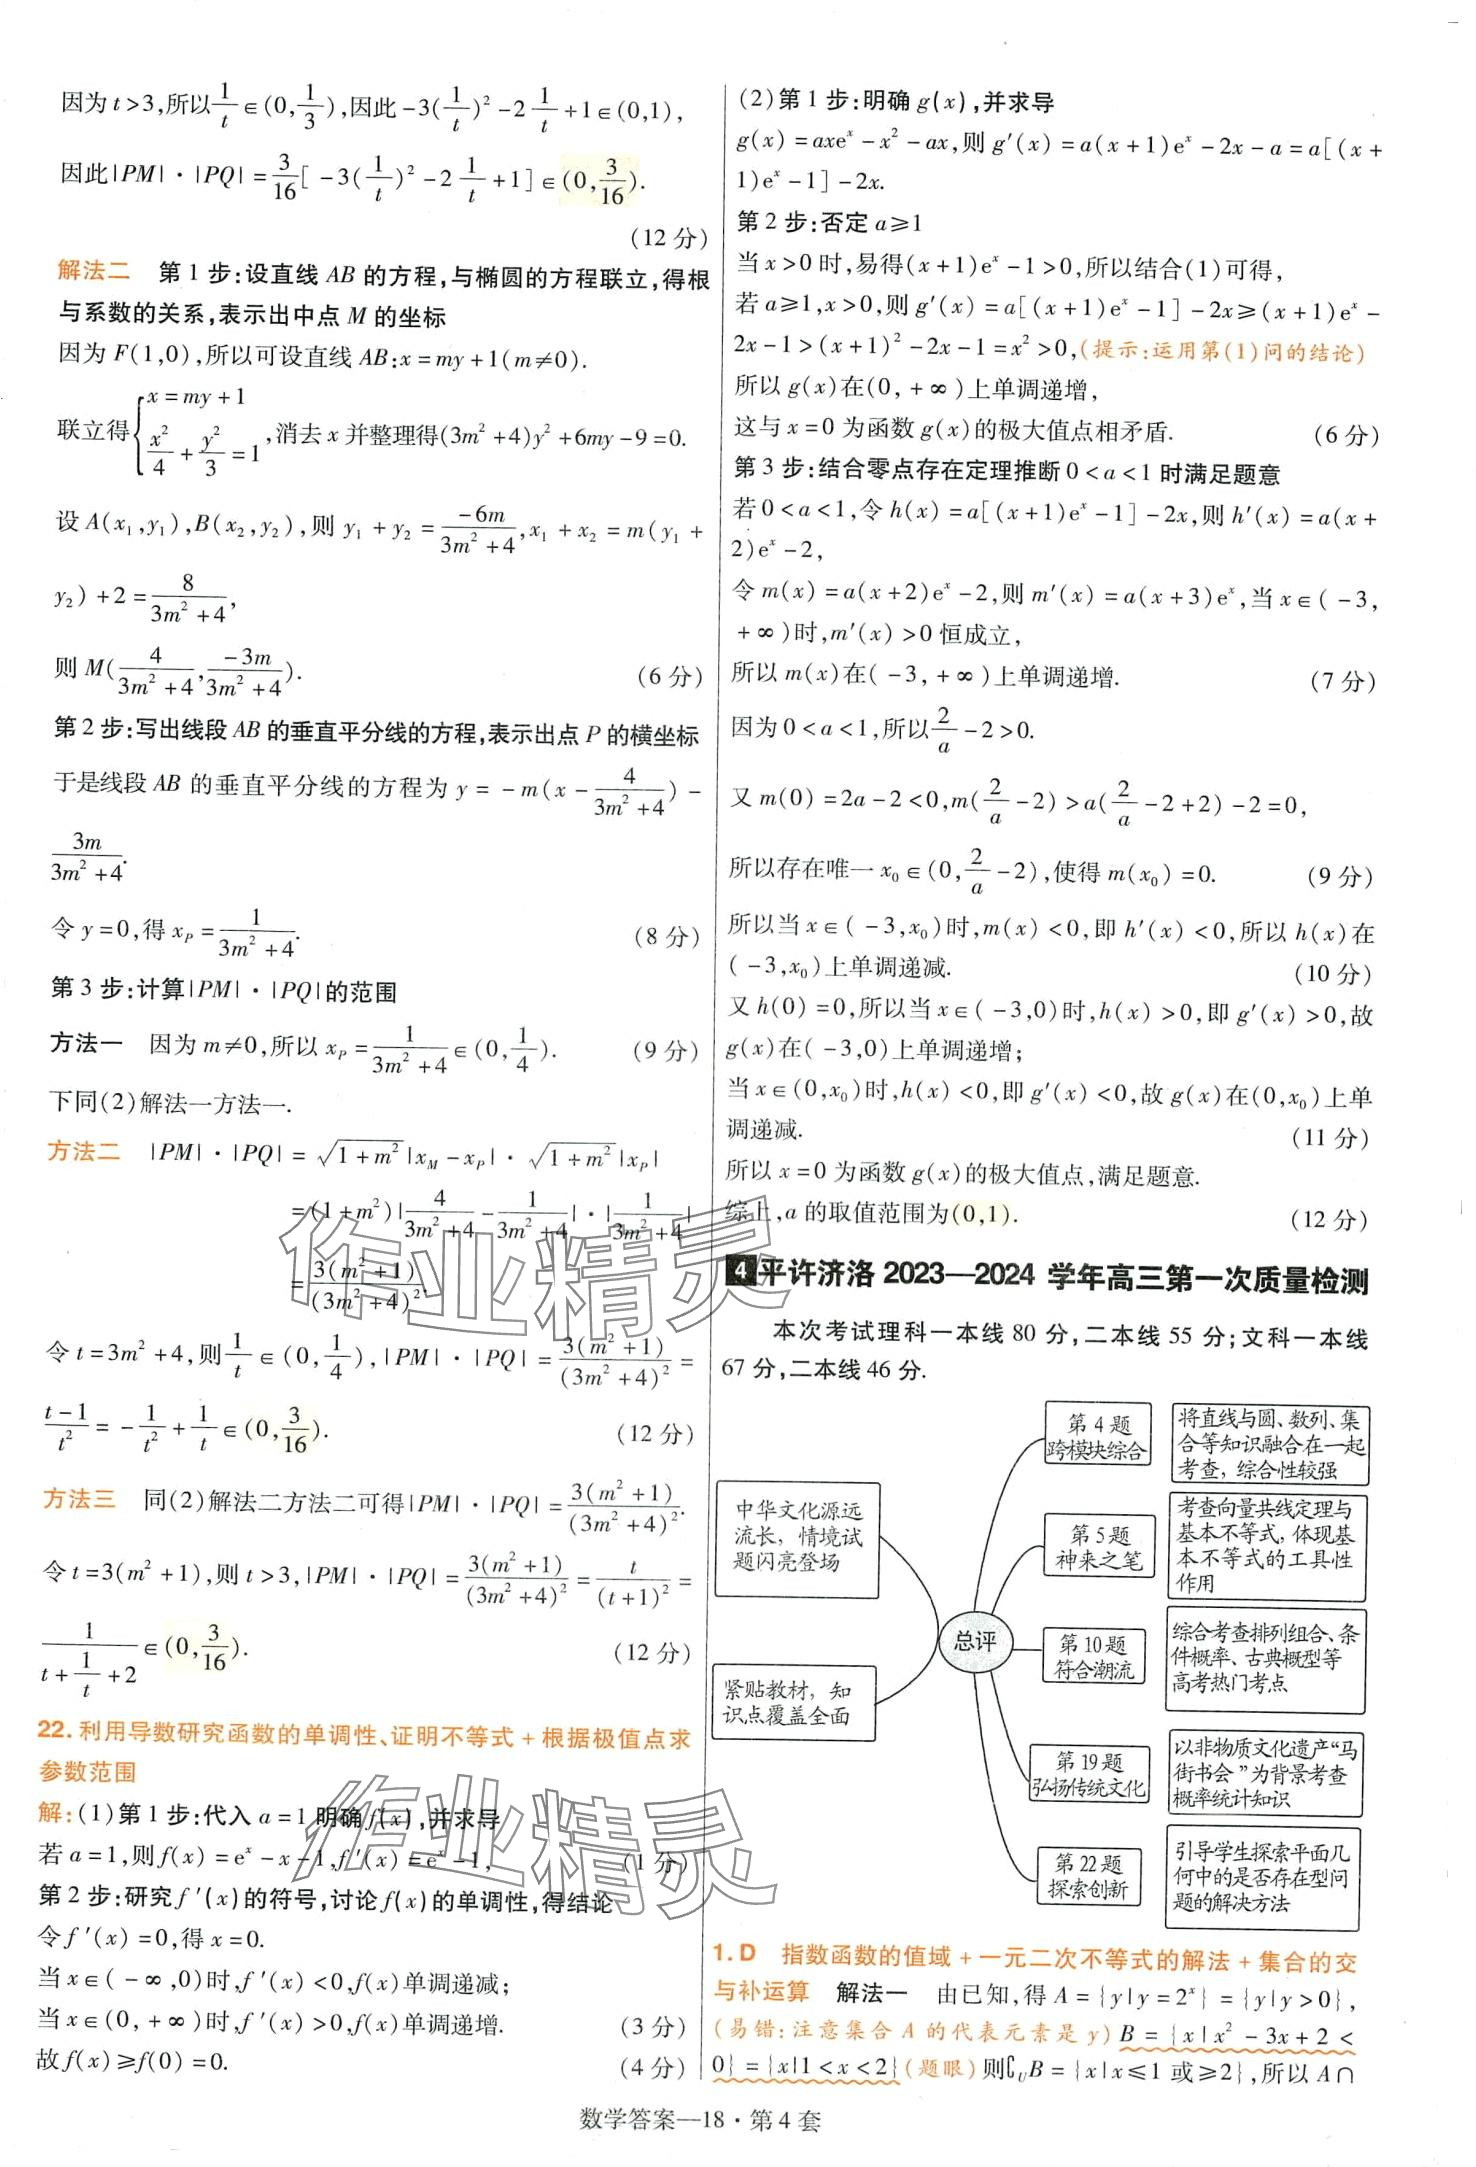 因为t>3,所以1/t∈(0,1/3),因此-3(1/t)²-2 1/t+1∈(0,1),
因此|PM|·|PQ|=3/16[-3(1/t)²-2 1/t+1]∈(0,3/16).
(12分)
解法二 第1步:设直线AB的方程,与椭圆的方程联立,得根
与系数的关系,表示出中点M的坐标
因为F(1,0),所以可设直线AB:x=my+1(m≠0).
联立得{x=my+1, x²/4+y²/3=1,消去x并整理得(3m²+4)y²+6my-9=0.
设A(x₁,y₁),B(x₂,y₂),则y₁+y₂=-6m/(3m²+4),x₁+x₂=m(y₁+
y₂)+2=8/(3m²+4),
则M(4/(3m²+4),-3m/(3m²+4)). (6分)
第2步:写出线段AB的垂直平分线的方程,表示出点P的横坐标
于是线段AB的垂直平分线的方程为y=-m(x-4/(3m²+4))-
3m/(3m²+4).
令y=0,得x_P=1/(3m²+4). (8分)
第3步:计算|PM|·|PQ|的范围
方法一 因为m≠0,所以x_P=1/(3m²+4)∈(0,1/4). (9分)
下同(2)解法一方法一.
方法二 |PM|·|PQ|=√(1+m²)|x_M-x_P|·√(1+m²)|x_P|
=(1+m²)|4/(3m²+4)-1/(3m²+4)|·|1/(3m²+4)|
=3(m²+1)/(3m²+4)²,
令t=3m²+4,则1/t∈(0,1/4),|PM|·|PQ|=3(m²+1)/(3m²+4)²=
(t-1)/t²=-1/t²+1/t∈(0,3/16). (12分)
方法三 同(2)解法二方法二可得|PM|·|PQ|=3(m²+1)/(3m²+4)².
令t=3(m²+1),则t>3,|PM|·|PQ|=3(m²+1)/(3m²+4)²=t/(t+1)²=
1/(t+1/t+2)∈(0,3/16). (12分)
22.利用导数研究函数的单调性、证明不等式+根据极值点求
参数范围
解:(1)第1步:代入a=1明确f(x),并求导
若a=1,则f(x)=eˣ-x-1,f′(x)=eˣ-1, (1分)
第2步:研究f′(x)的符号,讨论f(x)的单调性,得结论
令f′(x)=0,得x=0.
当x∈(-∞,0)时,f′(x)<0,f(x)单调递减;
当x∈(0,+∞)时,f′(x)>0,f(x)单调递增. (3分)
故f(x)≥f(0)=0. (4分)
(2)第1步:明确g(x),并求导
g(x)=axeˣ-x²-ax,则g′(x)=a(x+1)eˣ-2x-a=a[(x+
1)eˣ-1]-2x.
第2步:否定a≥1
当x>0时,易得(x+1)eˣ-1>0,所以结合(1)可得,
若a≥1,x>0,则g′(x)=a[(x+1)eˣ-1]-2x≥(x+1)eˣ-
2x-1>(x+1)²-2x-1=x²>0,(提示:运用第(1)问的结论)
所以g(x)在(0,+∞)上单调递增,
这与x=0为函数g(x)的极大值点相矛盾. (6分)
第3步:结合零点存在定理推断0<a<1时满足题意
若0<a<1,令h(x)=a[(x+1)eˣ-1]-2x,则h′(x)=a(x+
2)eˣ-2,
令m(x)=a(x+2)eˣ-2,则m′(x)=a(x+3)eˣ,当x∈(-3,
+∞)时,m′(x)>0恒成立,
所以m(x)在(-3,+∞)上单调递增. (7分)
因为0<a<1,所以2/a-2>0.
又m(0)=2a-2<0,m(2/a-2)>a(2/a-2+2)-2=0,
所以存在唯一x₀∈(0,2/a-2),使得m(x₀)=0. (9分)
所以当x∈(-3,x₀)时,m(x)<0,即h′(x)<0,所以h(x)在
(-3,x₀)上单调递减. (10分)
又h(0)=0,所以当x∈(-3,0)时,h(x)>0,即g′(x)>0,故
g(x)在(-3,0)上单调递增;
当x∈(0,x₀)时,h(x)<0,即g′(x)<0,故g(x)在(0,x₀)上单
调递减. (11分)
所以x=0为函数g(x)的极大值点,满足题意.
综上,a的取值范围为(0,1). (12分)
4 平许济洛2023—2024学年高三第一次质量检测
本次考试理科一本线80分,二本线55分;文科一本线
67分,二本线46分.
中华文化源远
流长,情境试
题闪亮登场
紧贴教材,知
识点覆盖全面
总评
第4题
跨模块综合
将直线与圆、数列、集
合等知识融合在一起
考查,综合性较强
第5题
神来之笔
考查向量共线定理与
基本不等式,体现基
本不等式的工具性
作用
第10题
符合潮流
综合考查排列组合、条
件概率、古典概型等
高考热门考点
第19题
弘扬传统文化
以非物质文化遗产“马
街书会”为背景考查
概率统计知识
第22题
探索创新
引导学生探索平面几
何中的是否存在型问
题的解决方法
1.D 指数函数的值域+一元二次不等式的解法+集合的交
与补运算 解法一 由已知,得A={y|y=2ˣ}={y|y>0},
(易错:注意集合A的代表元素是y)B={x|x²-3x+2<
0}={x|1<x<2}(题眼)则∁_UB={x|x≤1或≥2},所以A∩
数学答案—18·第4套
作业精灵
作业精灵